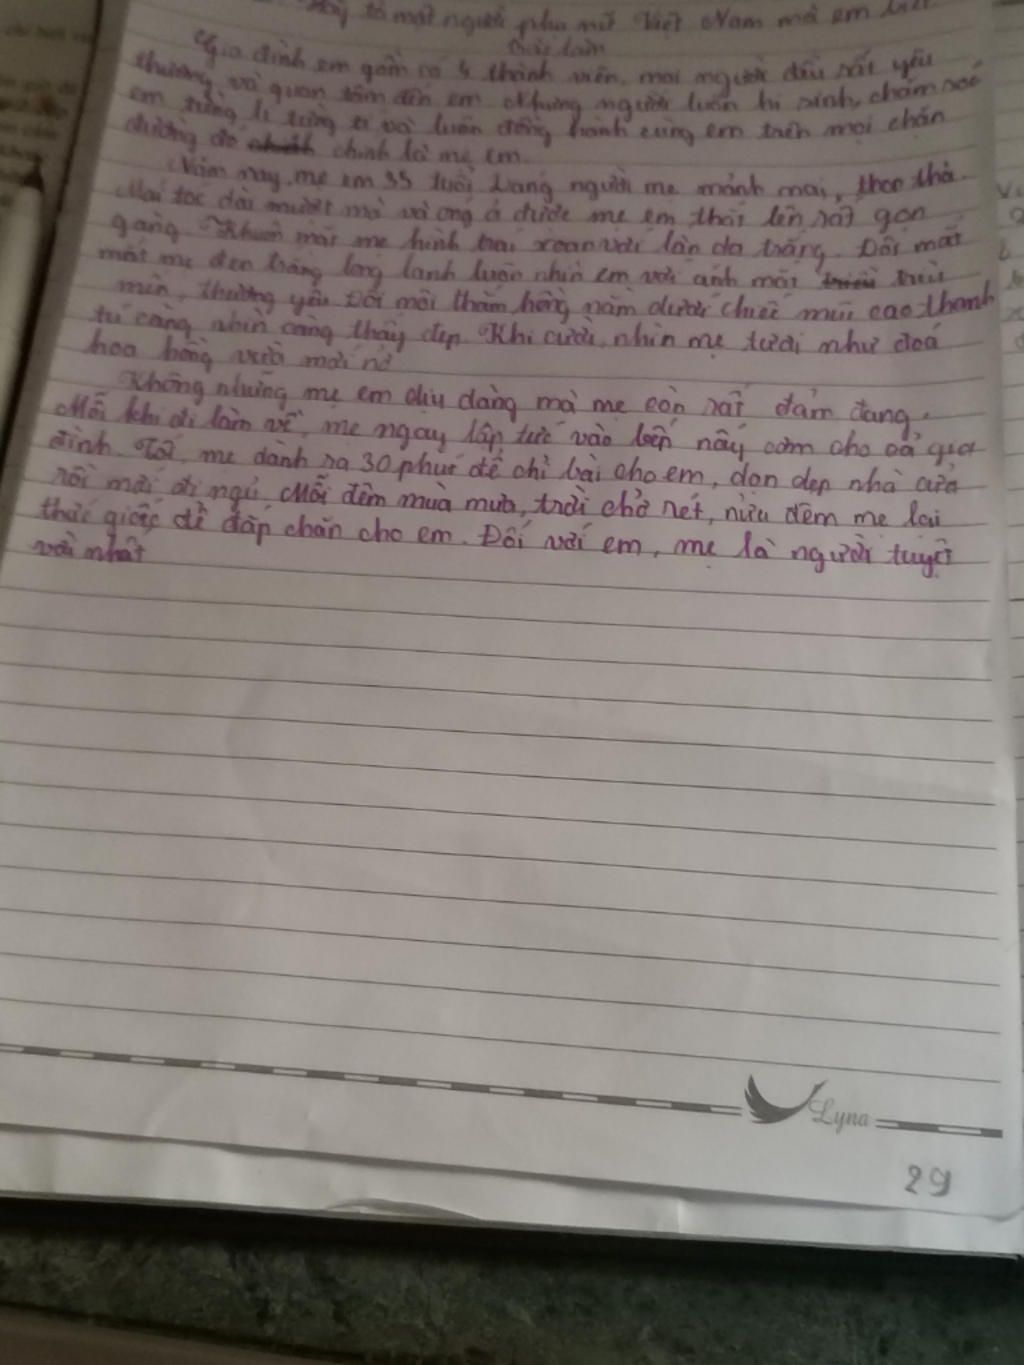 tả một người phụ nữ Việt Nam mà em
Bài làm
Gia đình em gồm có 4 thành viên, mọi người đều rất yêu
thương và quan tâm đến em. Nhưng người luôn hi sinh, chăm sóc
em từng li từng tí và luôn đồng hành cùng em trên mọi chặn
đường đó chính là mẹ em.
Năm nay, mẹ em 35 tuổi. Dáng người mẹ mảnh mai, thon thả.
Mái tóc dài mượt mà và óng ả được mẹ em thắt lên rất gọn
gàng. Khuôn mặt mẹ hình trái xoan với làn da trắng. Đôi mắt
mắt mẹ đen trắng long lanh luôn nhìn em với ánh mắt trìu
mến, thương yêu. Đôi môi thắm hồng nằm dưới chiếc mũi cao thanh
tú càng nhìn càng thấy đẹp. Khi cười, nhìn mẹ tươi như đoá
hoa hồng vừa mới nở
Không những mẹ em dịu dàng mà mẹ còn rất đảm đang.
Mỗi khi đi làm về, mẹ ngay lập tức vào bếp nấy cơm cho cả gia
đình. Tối, mẹ dành ra 30 phút để chỉ bài cho em, dọn dẹp nhà cửa
rồi mới đi ngủ. Mỗi đêm mùa mưa, trời chở rét, nửa đêm mẹ lại
thức giấc để đắp chăn cho em. Đối với em, mẹ là người tuyệt
vời nhất
Lyna
29